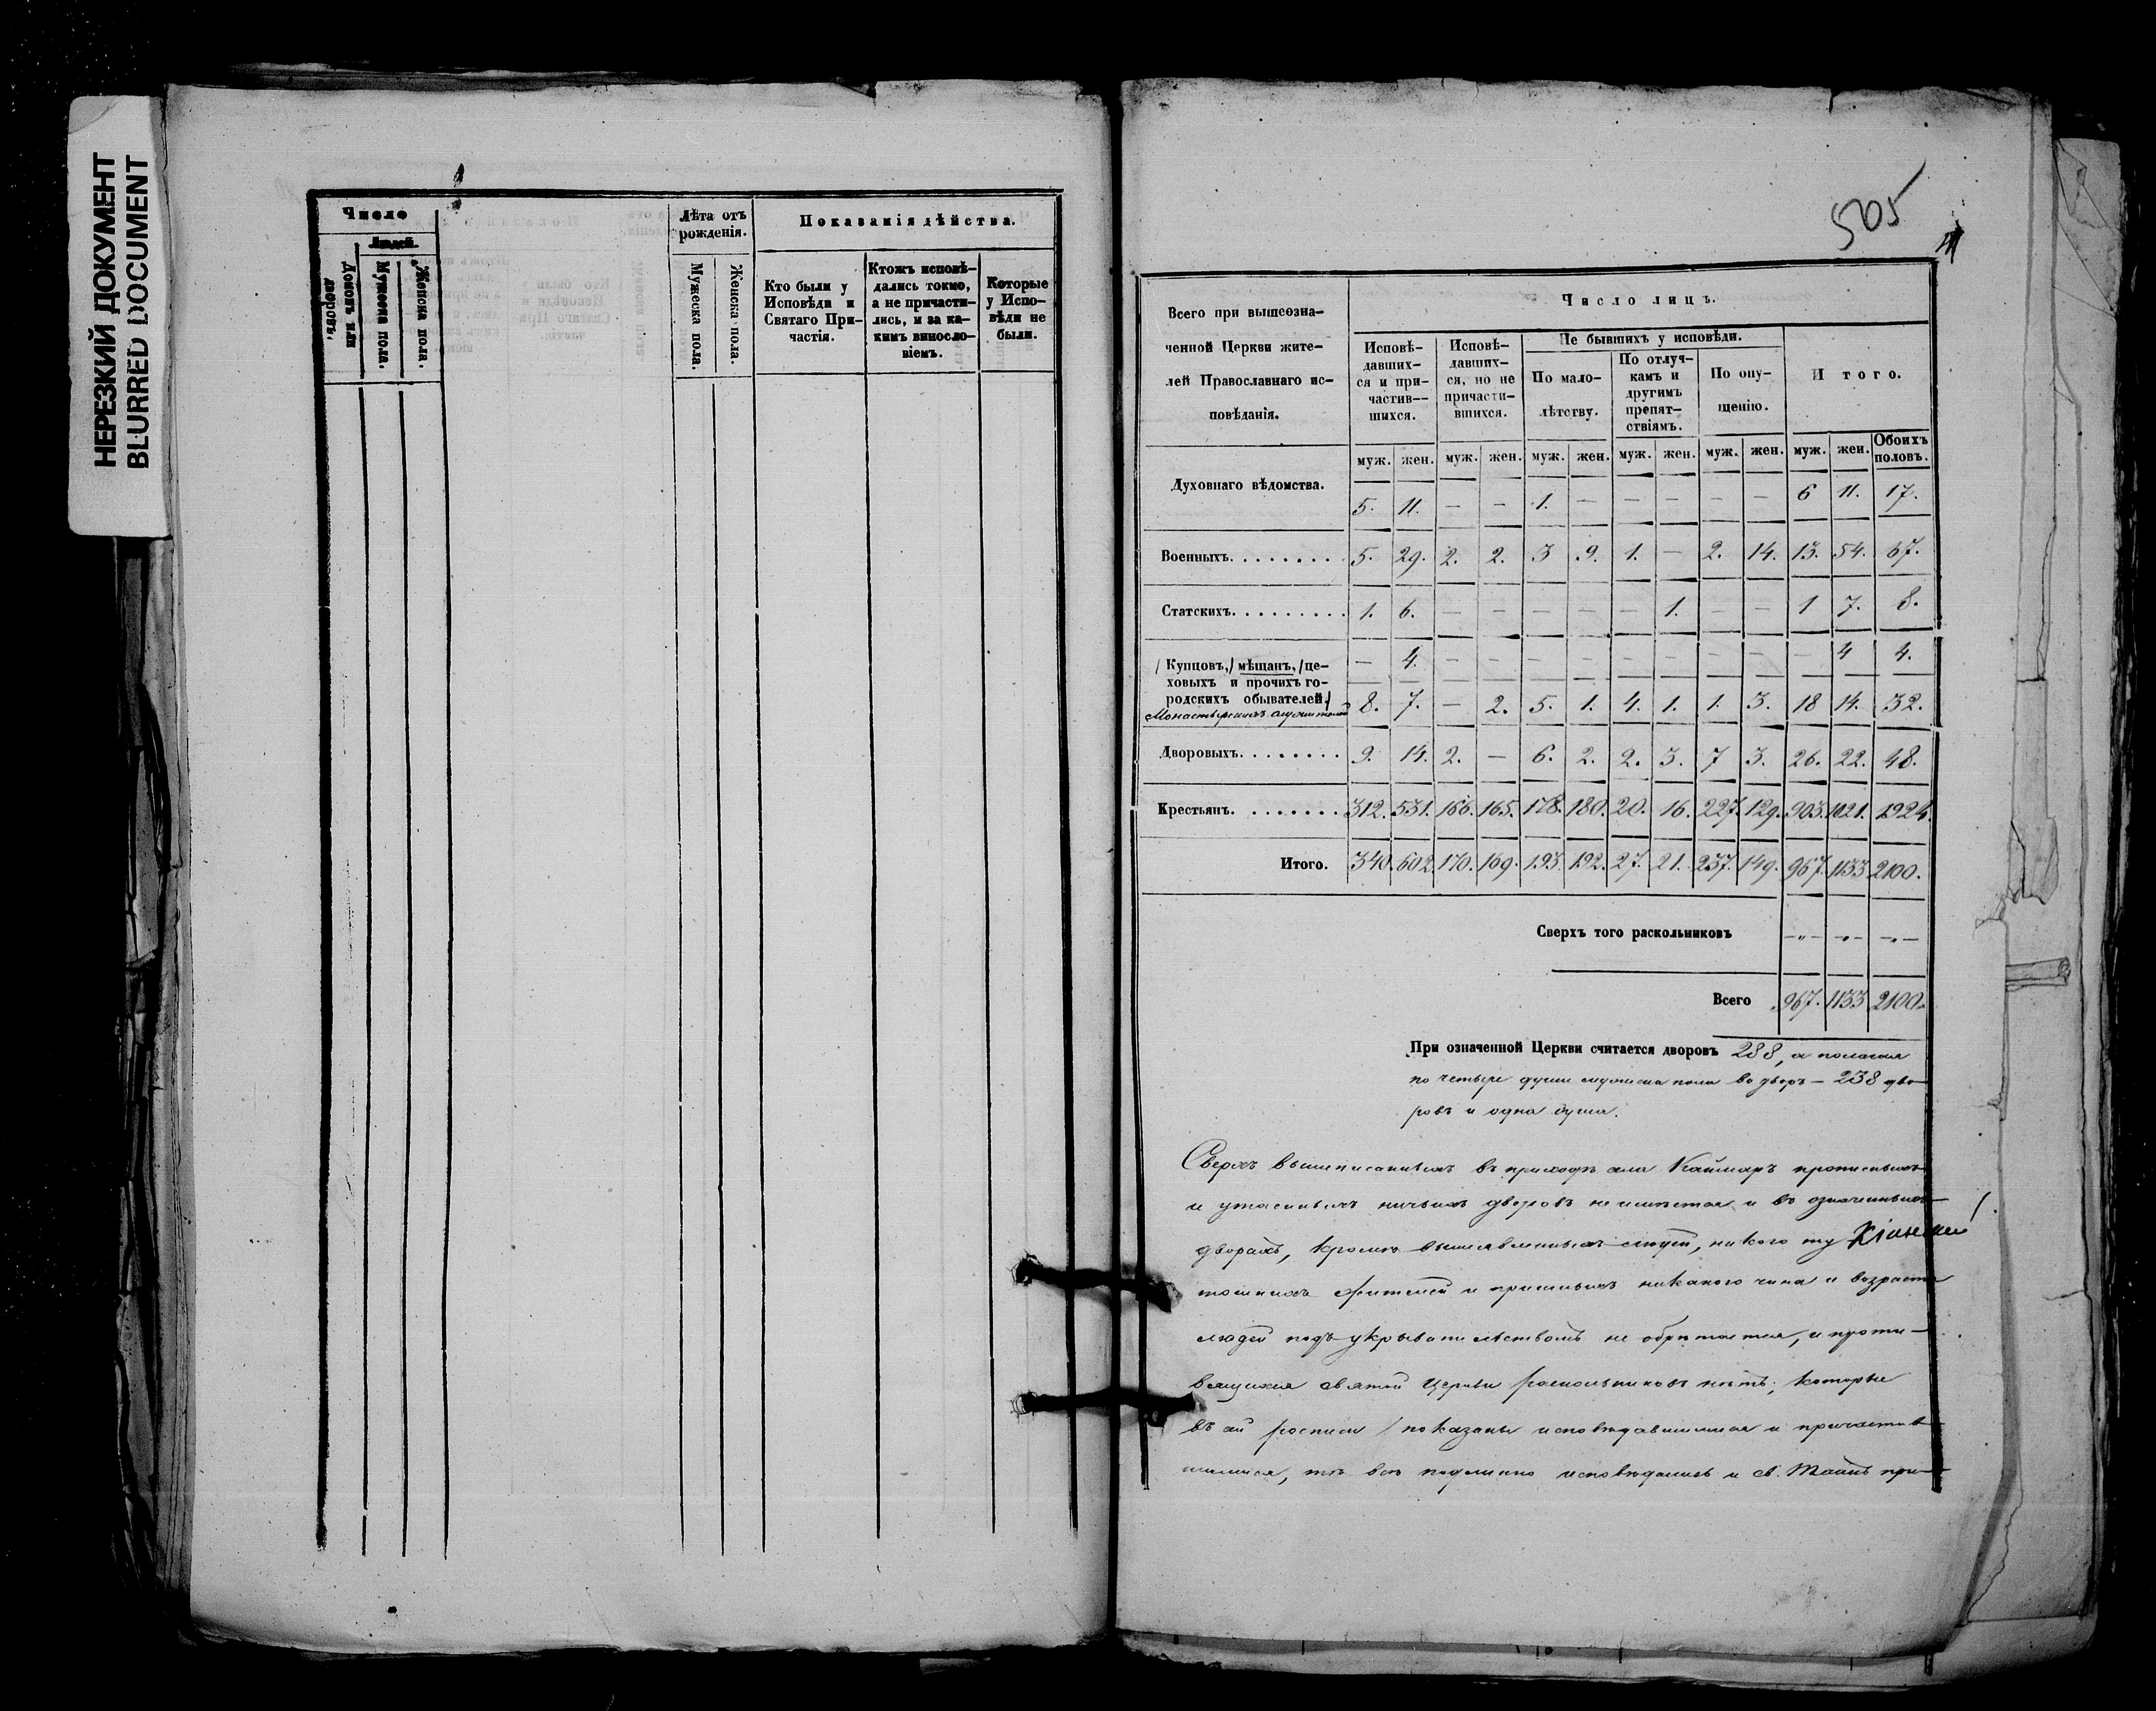 НЕРЕЗКИЙ ДОКУМЕНТ
BLURRED DOCUMENT
Число
Людей.
Домовъ или дворовъ.
Мужеска пола.
Женска пола.
Лѣта отъ рожденія.
Мужеска пола.
Женска пола.
Показанія дѣйства.
Кто были у Исповѣди и Святаго Причастія.
Ктожъ исповѣдались токмо, а не причастились, и за какимъ винословіемъ.
Которые у Исповѣди не были.
505
Всего при вышеозначенной Церкви жителей Православнаго исповѣданія.
Число лицъ.
Исповѣдавшихся и причастившихся.
Исповѣдавшихся, но не причастившихся.
Не бывшихъ у исповѣди.
По малолѣтству.
По отлучкамъ и другимъ препятствіямъ.
По опущенію.
Итого.
муж. жен. муж. жен. муж. жен. муж. жен. муж. жен. муж. жен. Обоихъ половъ.
Духовнаго вѣдомства. 5. 11. — — 1. — — — — — 6 11. 17.
Военныхъ. 5. 29. 2. 2. 3 9. 1. — 2. 14. 13. 54. 67.
Статскихъ. 1. 6. — — — — — 1. — — 1 7. 8.
Купцовъ, мѣщанъ, цеховыхъ и прочихъ городскихъ обывателей. — 4. — — — — — — — — — 4 4.
Монастырскихъ 8. 7. — 2. 5. 1. 4. 1. 1. 3. 18 14. 32.
Дворовыхъ. 9. 14. 2. — 6. 2. 2. 3. 7 3. 26. 22. 48.
Крестьянъ. 312. 531. 166. 165. 178. 180. 20. 16. 227. 129. 903. 1021. 1924.
Итого. 340. 602. 170. 169. 193. 192. 27. 21. 237. 149. 967. 1133 2100.
Сверхъ того раскольниковъ —„— —„— —„—
Всего 967. 1133 2100.
При означенной Церкви считается дворовъ 288, а полагая
по четыре души мужеска пола во дворъ — 238 дво-
ровъ и одна душа.
Сверхъ вышеписанныхъ въ приходѣ села Каймаръ прописныхъ
и утаенныхъ ничьихъ дворовъ не имѣется и въ означенныхъ
дворахъ, кромѣ вышеявленныхъ никого
жителей и пришлыхъ никакого чина и возраста
людей подъ укрывательствомъ не обрѣтается, и проти-
вящихся святой Церкви раскольниковъ нѣтъ; которые
въ сей росписи показаны исповѣдавшимися и причастив-
шимися, тѣ всѣ подлинно исповѣдались и св. Таинъ при-